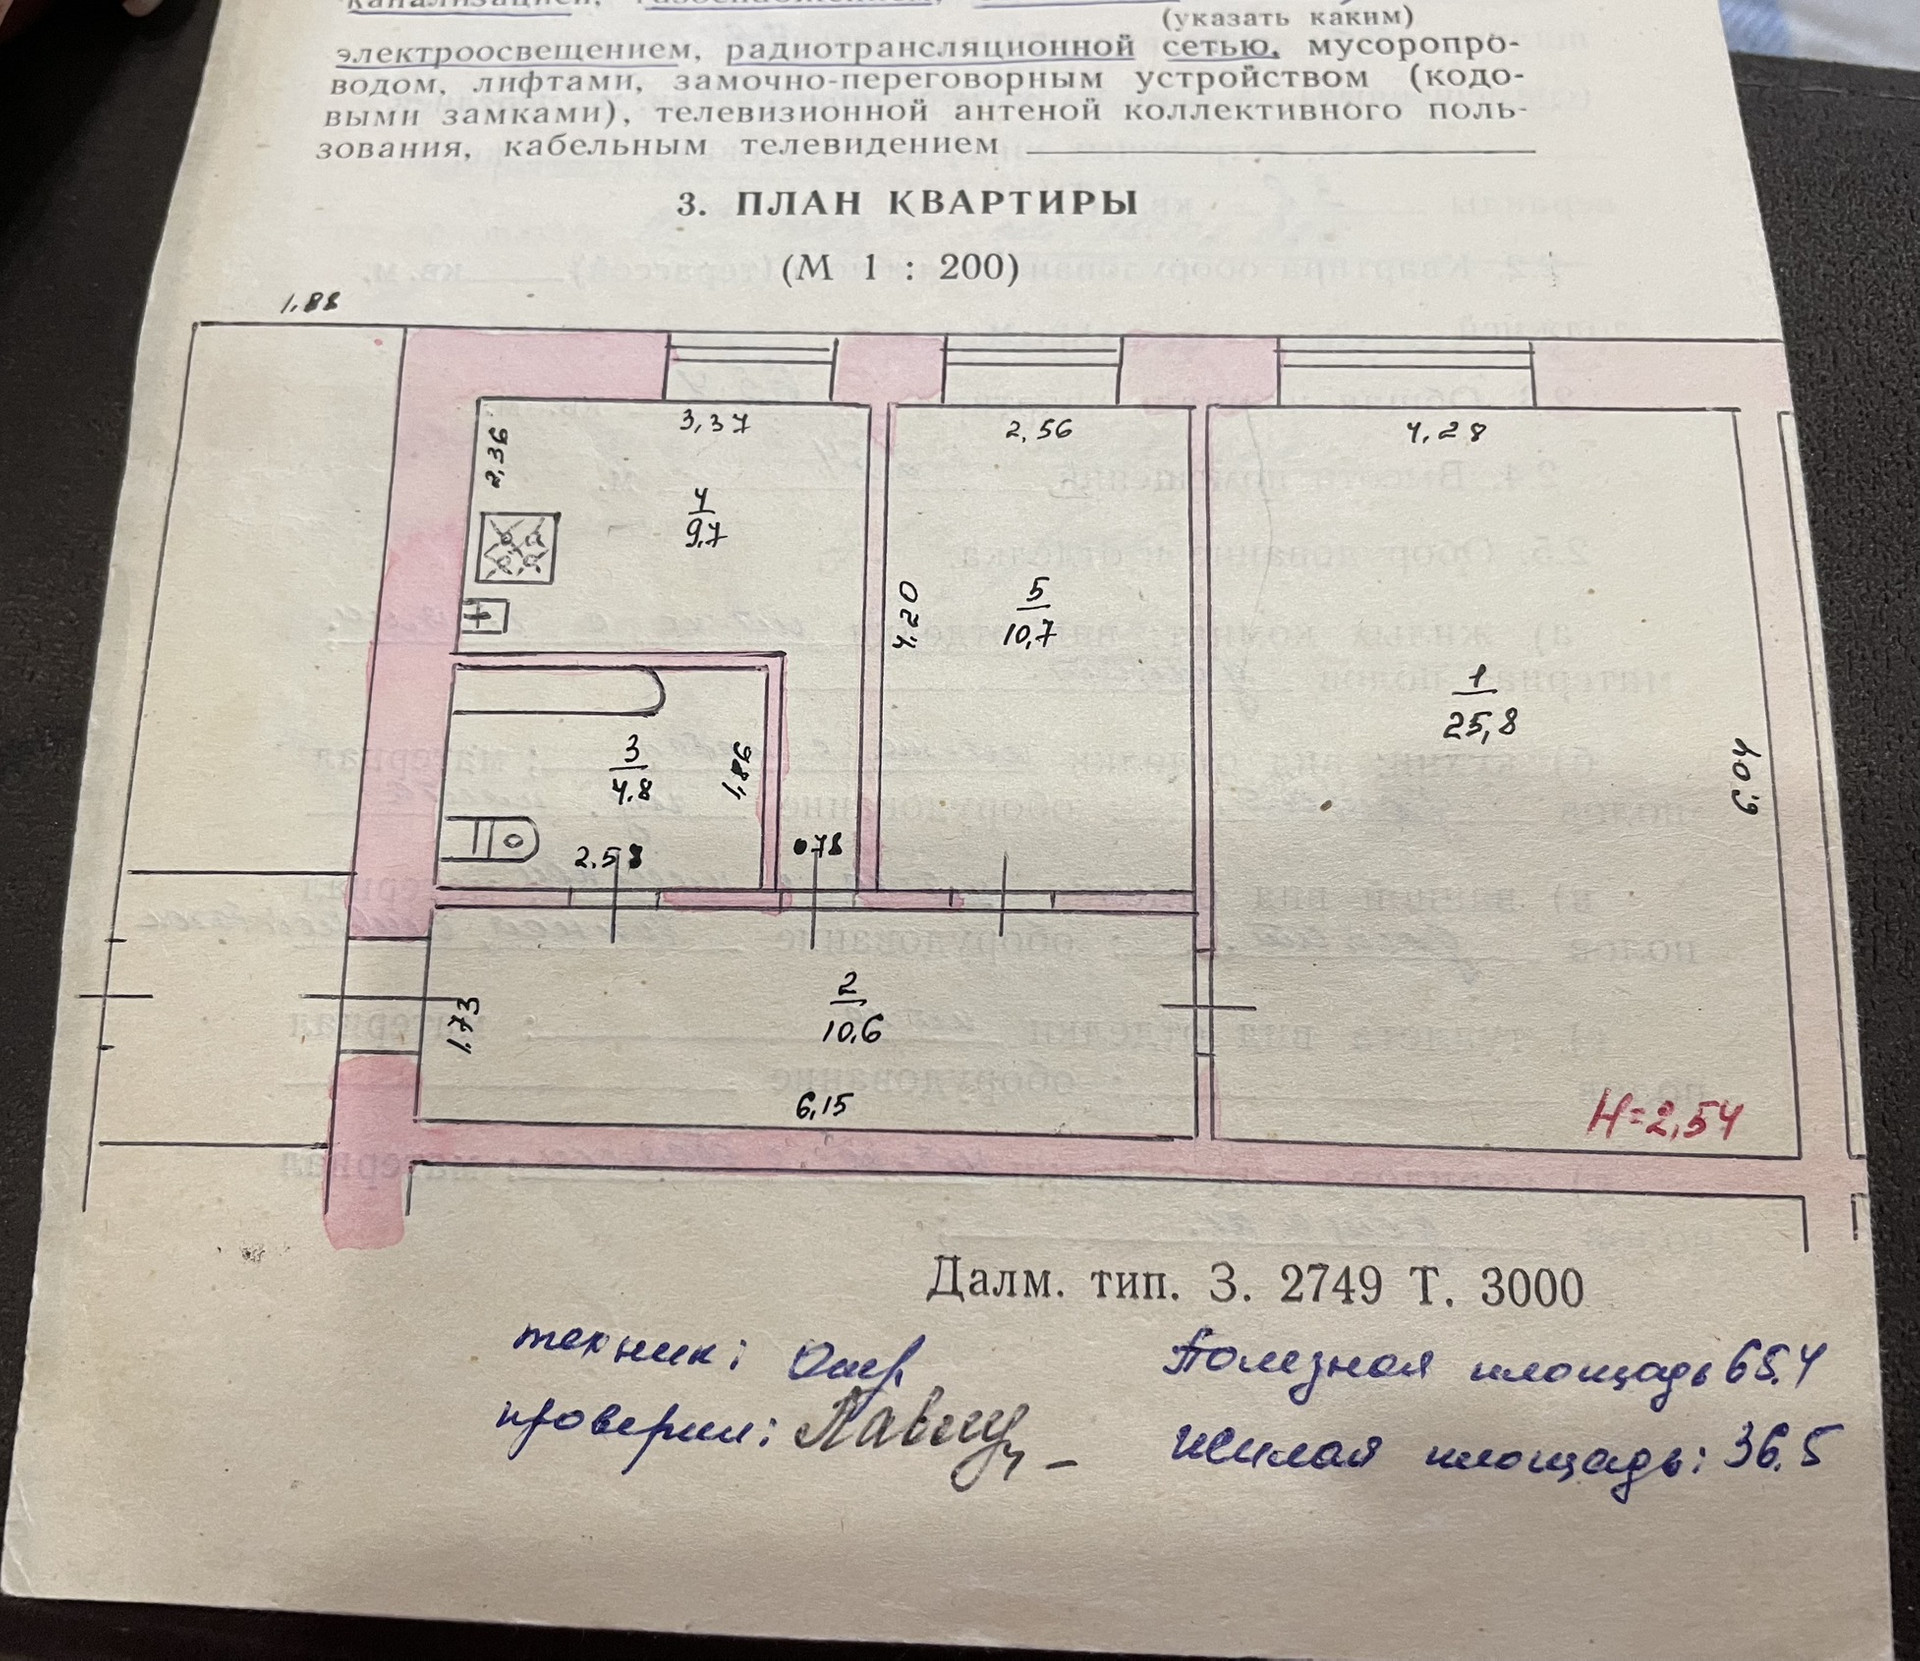 канализацией, газоснабжением,
(указать каким)
электроосвещением, радиотрансляционной сетью, мусоропро-
водом, лифтами, замочно-переговорным устройством (кодо-
выми замками), телевизионной антеной коллективного поль-
зования, кабельным телевидением
3. ПЛАН КВАРТИРЫ
(М 1 : 200)
1,88
3,37
2,56
4,28
2,36
4
9,7
4,20
5
10,7
1
25,8
6,04
3
4,8
1,86
2.58
078
1,73
2
10,6
6,15
H=2,54
Далм. тип. З. 2749 Т. 3000
техник:
Полезная площадь 65.4
проверил:
жилая площадь: 36.5